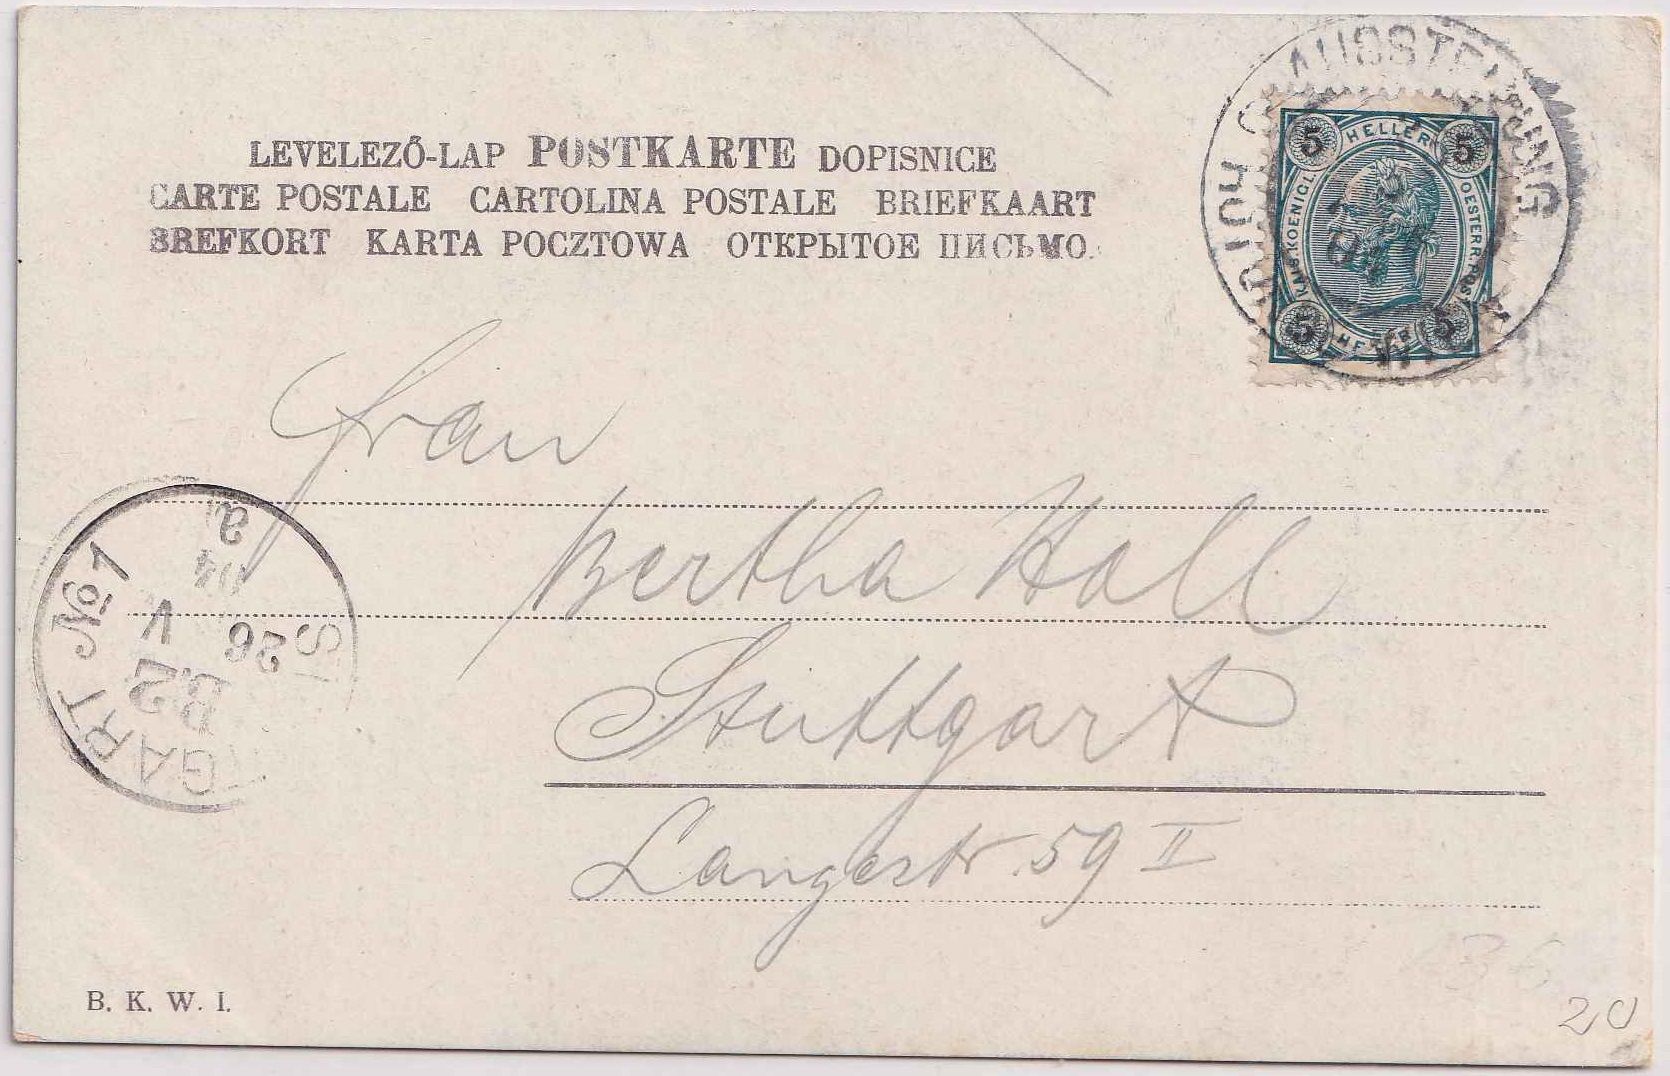 LEVELEZŐ-LAP POSTKARTE DOPISNICE
CARTE POSTALE CARTOLINA POSTALE BRIEFKAART
BREFKORT KARTA POCZTOWA ОТКРЫТОЕ ПИСЬМО.
AUSSTELLUNG
5 HELLER 5
KAIS. KOENIGL. OESTERR. POST
5 HELLER 5
Frau
Bertha Hall
Stuttgart
Langestr. 59 II
STUTTGART No 1
26 V 04
a
B.2
B. K. W. I.
20